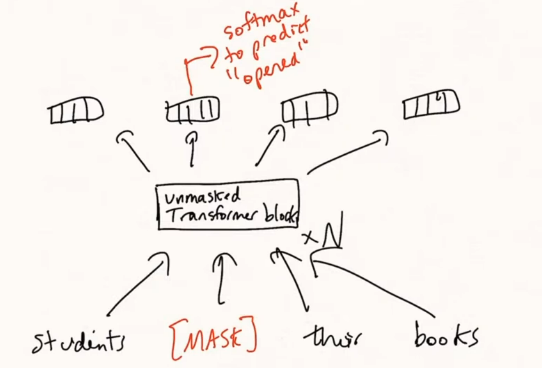 softmax
to predict
"opened"
unmasked
Transformer blocks
x N
students [MASK] their books